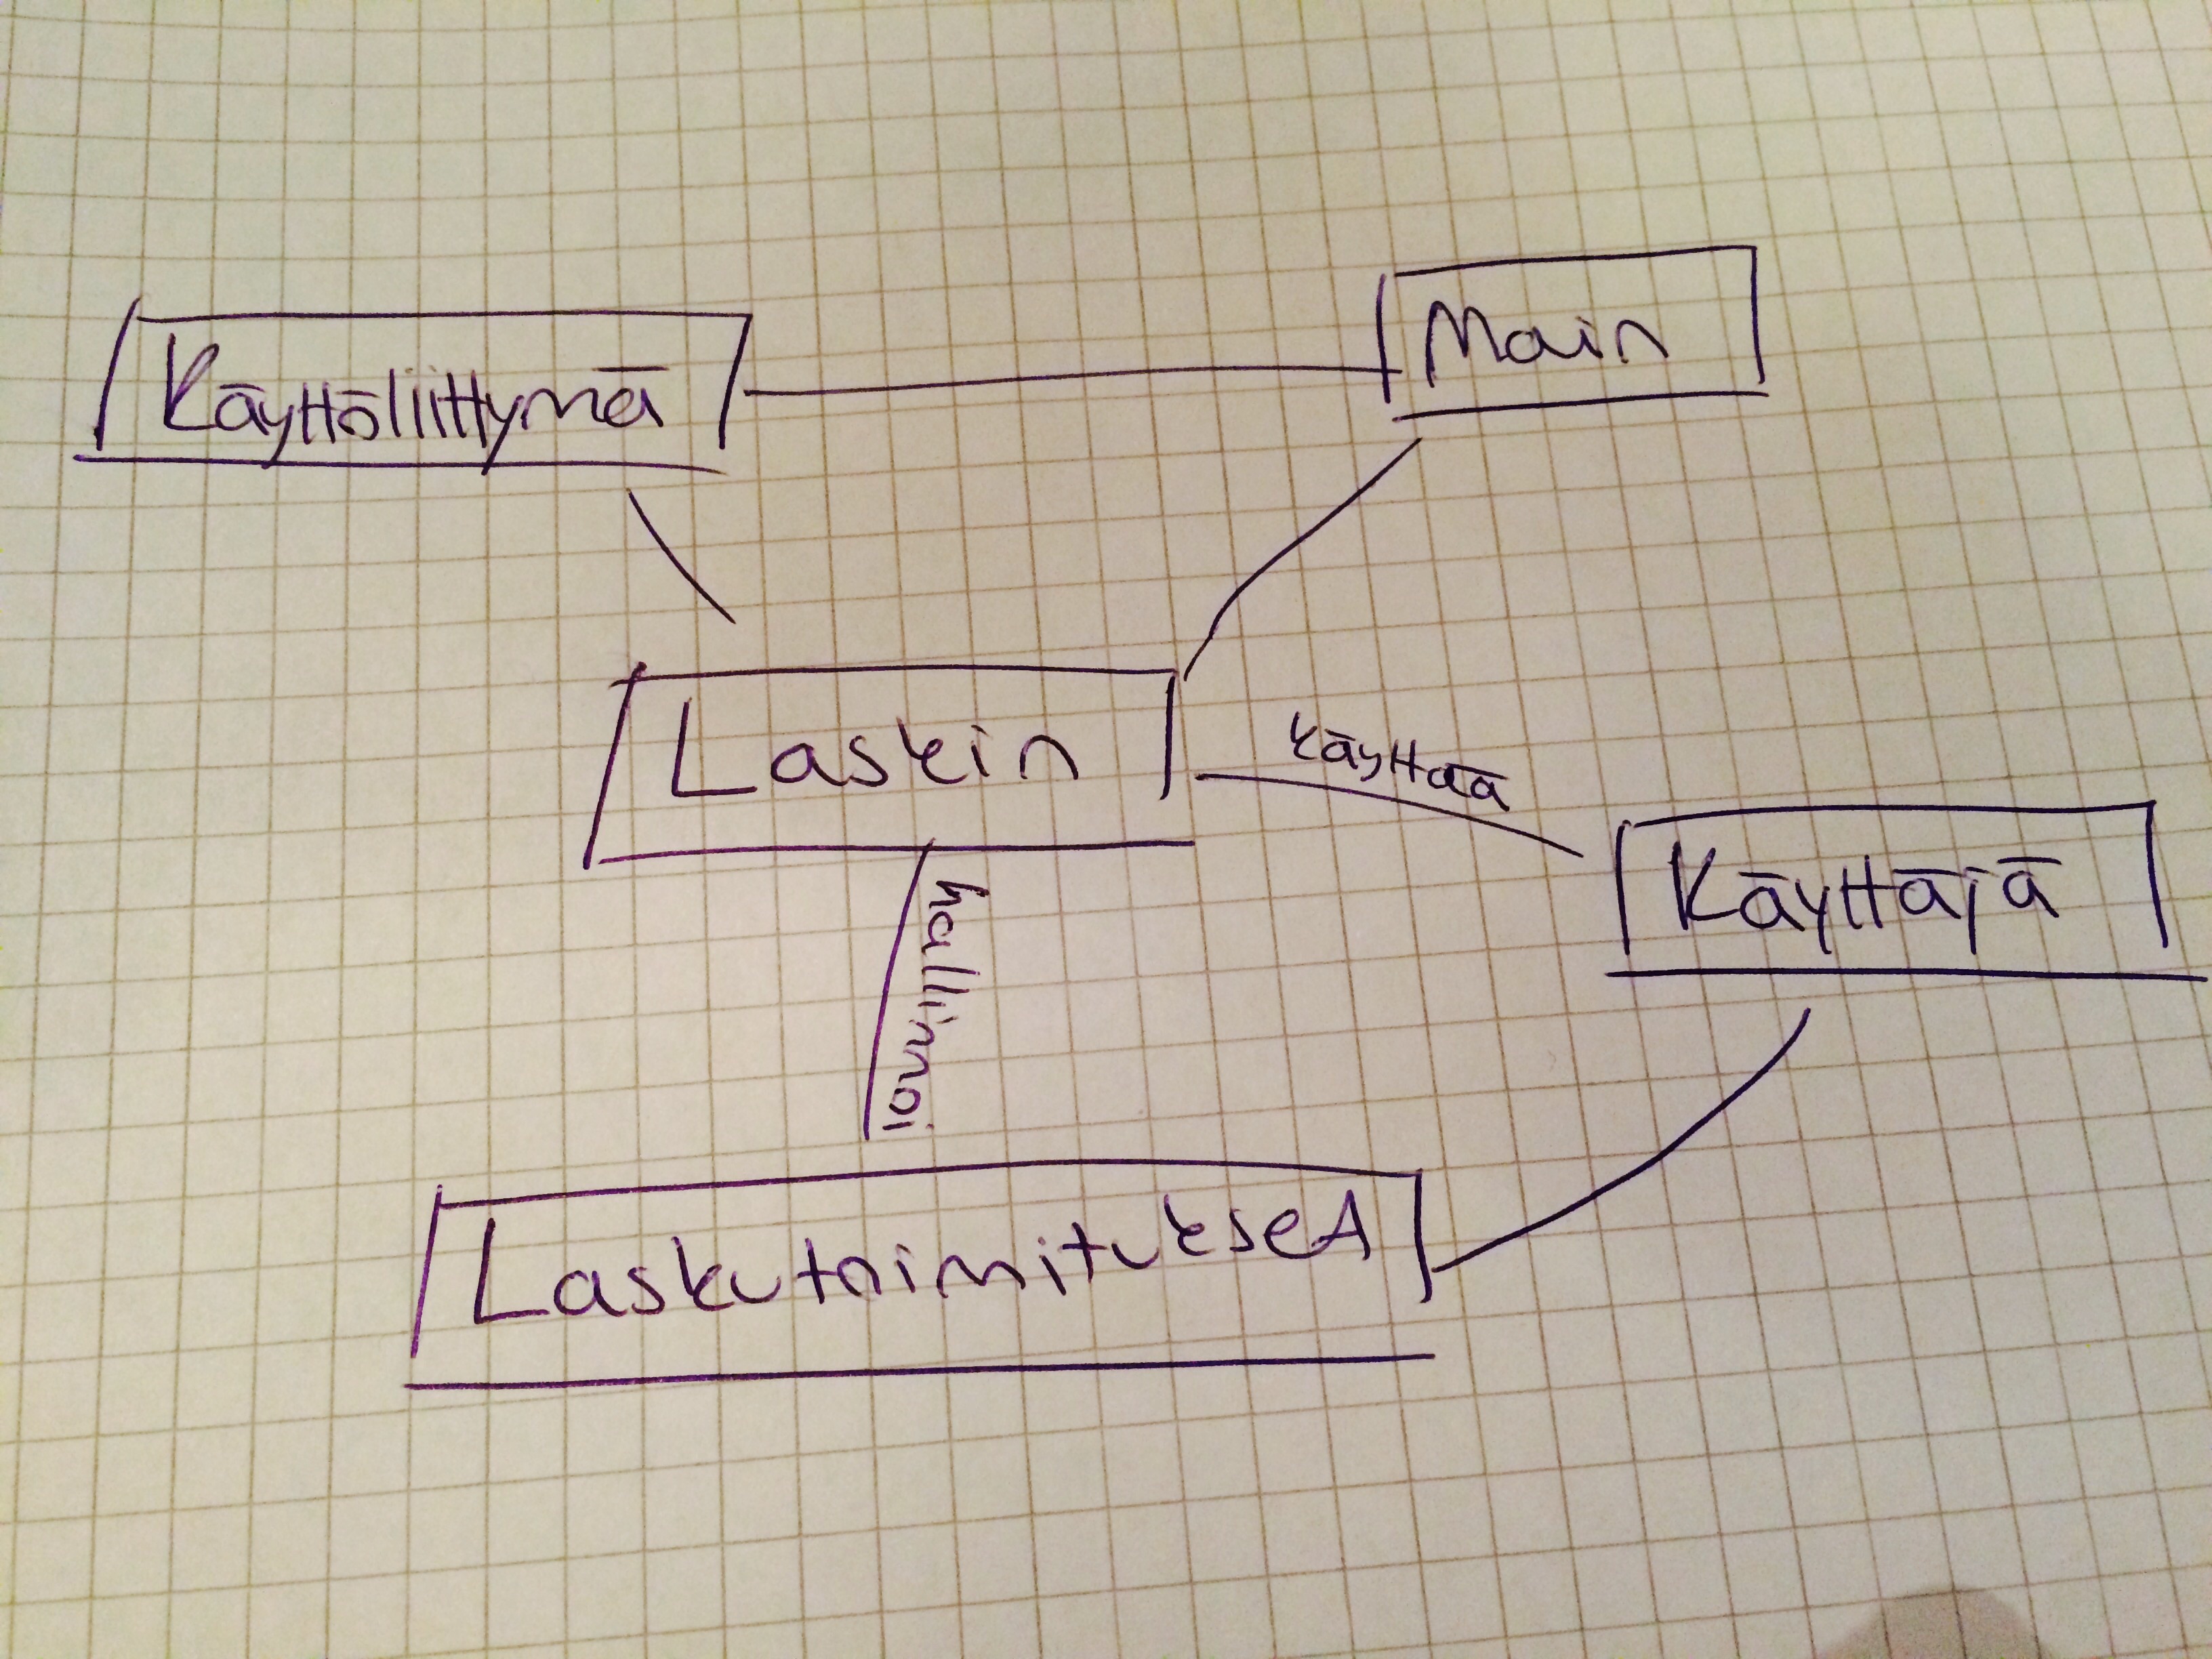 Main
Käyttöliittymä
Laskin
käyttää
Käyttäjä
hallinnoi
Laskutoimitukset